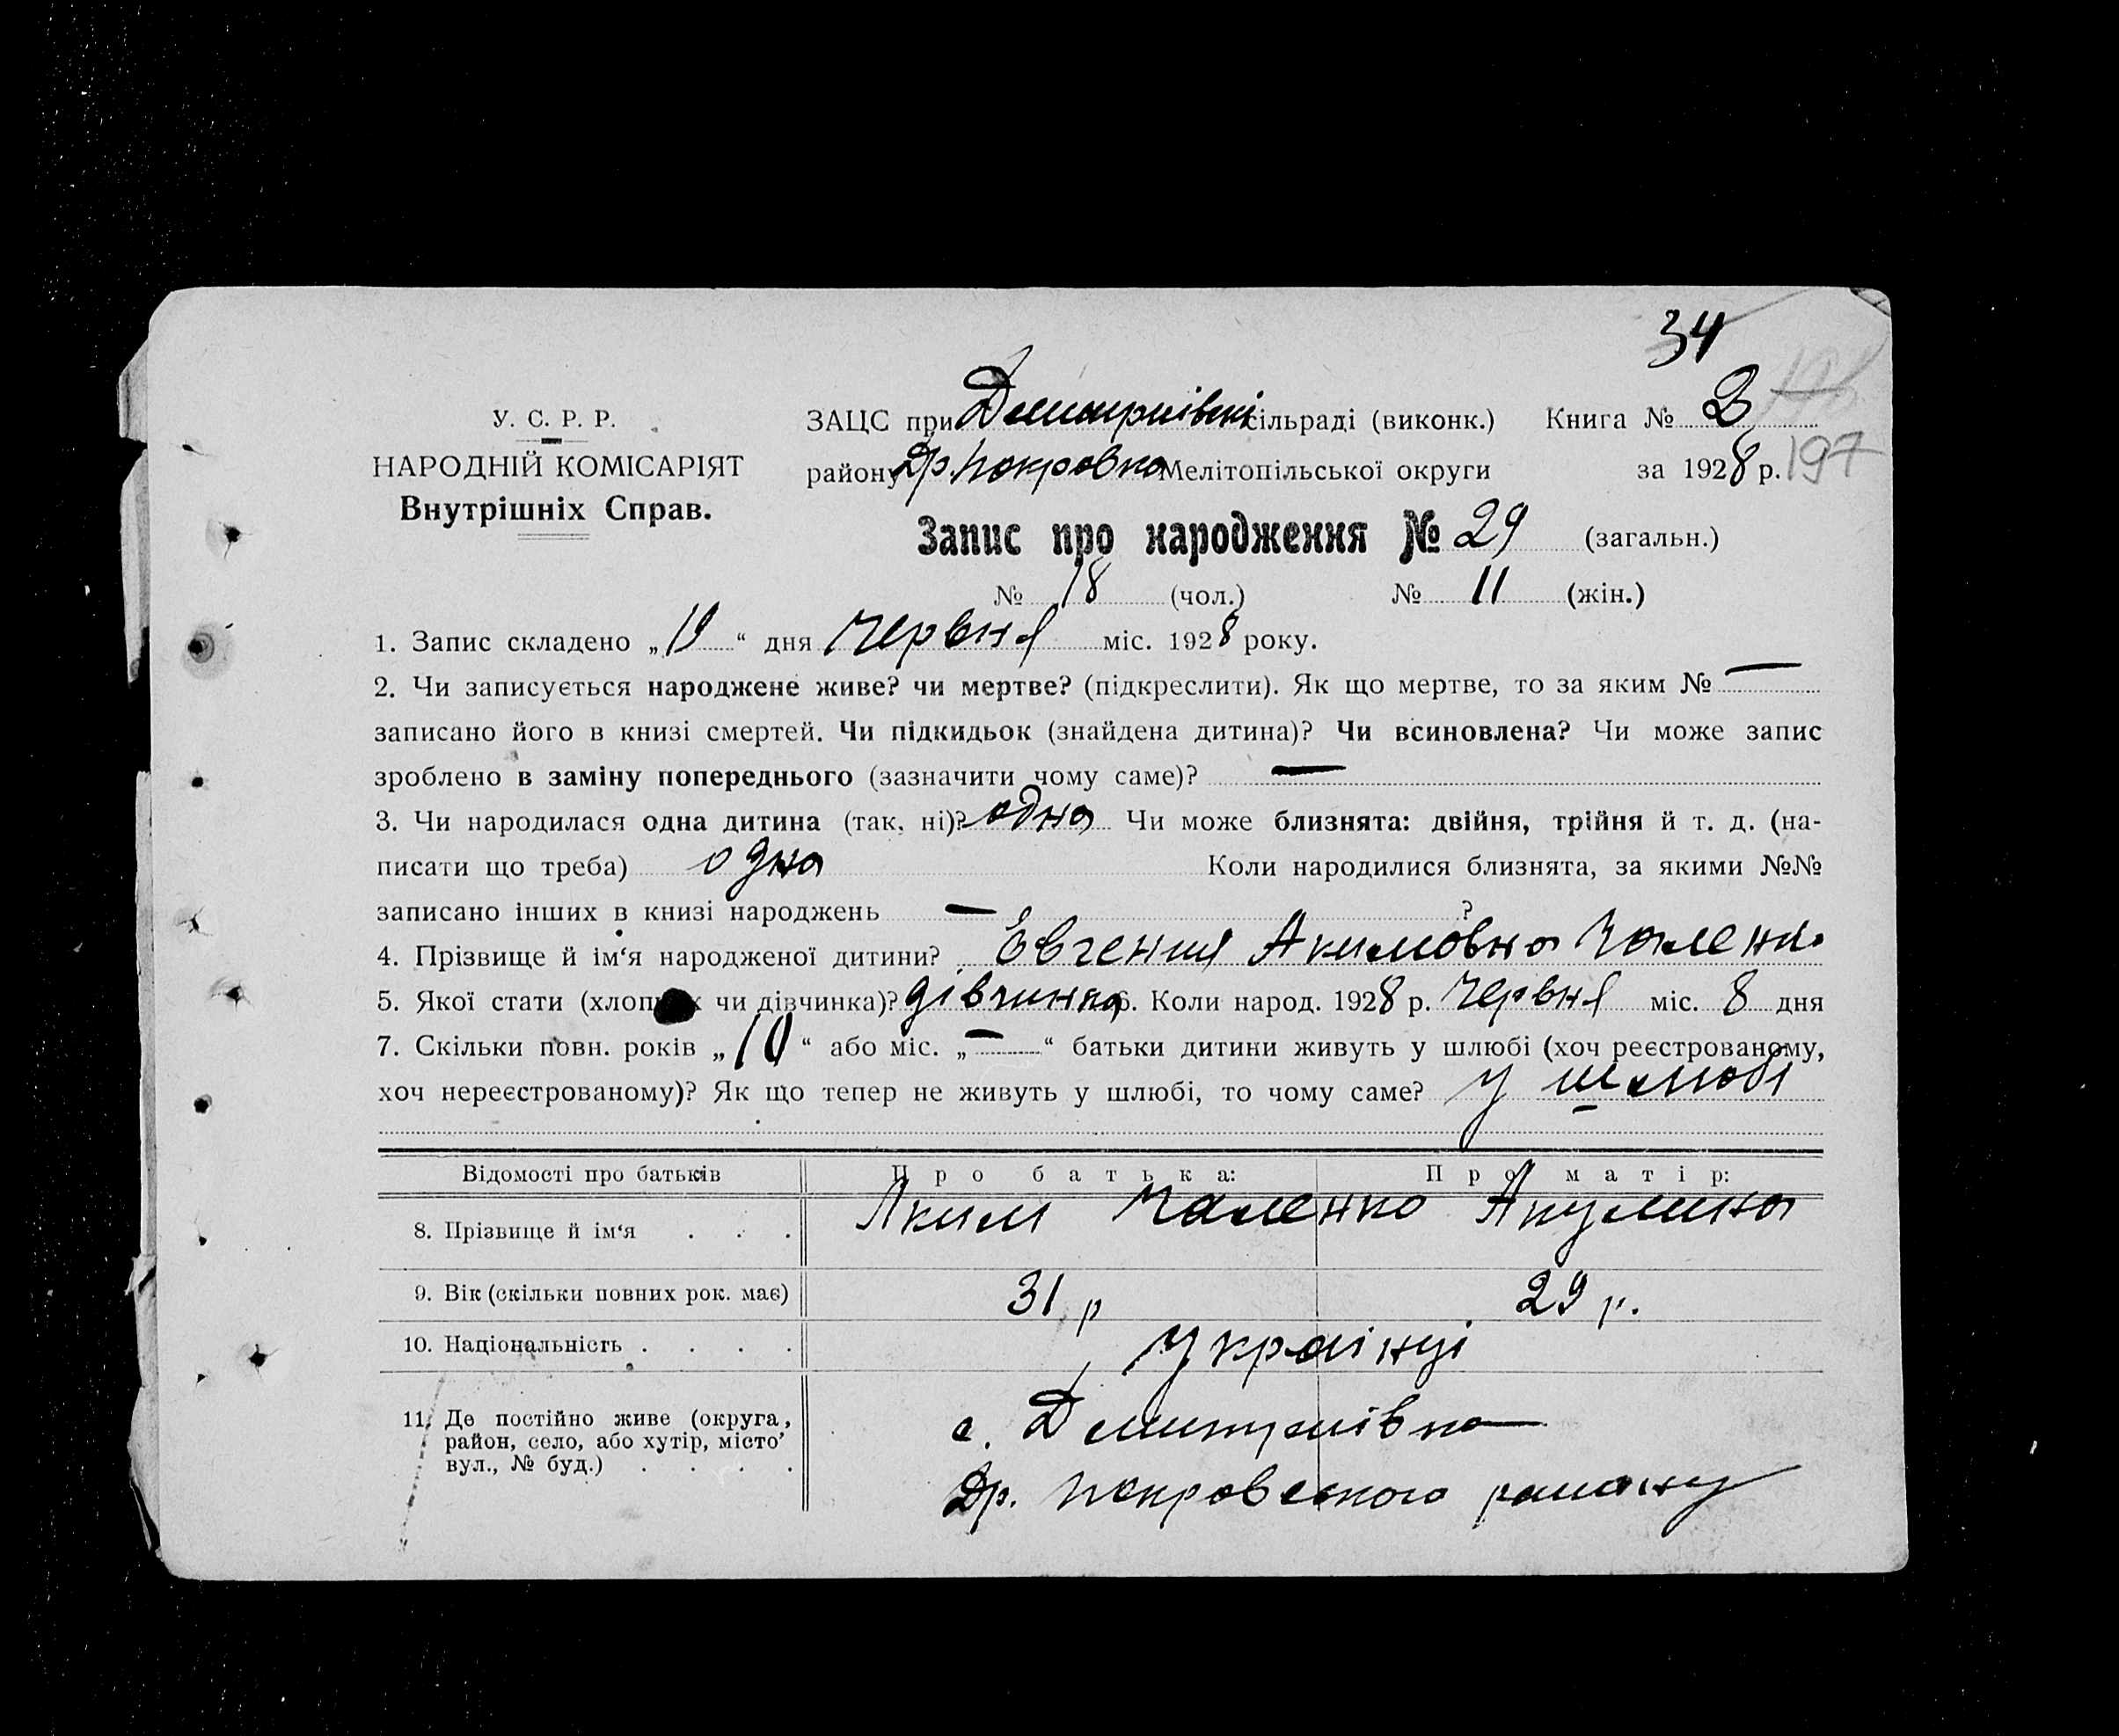 34
У. С. Р. Р.
НАРОДНІЙ КОМІСАРІЯТ
Внутрішніх Справ.
ЗАЦС при Дмитрівскі сільраді (виконк.) Книга № 2
району Др. Покровка Мелітопільської округи за 1928 р. 197
Запис про народження № 29 (загальн.)
№ 18 (чол.) № 11 (жін.)
1. Запис складено „19“ дня червня міс. 1928 року.
2. Чи записується народжене живе? чи мертве? (підкреслити). Як що мертве, то за яким № —
записано його в книзі смертей. Чи підкидьок (знайдена дитина)? Чи всиновлена? Чи може запис
зроблено в заміну попереднього (зазначити чому саме)? —
3. Чи народилася одна дитина (так, ні)? одна Чи може близнята: двійня, трійня й т. д. (на-
писати що треба) одна Коли народилися близнята, за якими №№
записано інших в книзі народжень — ?
4. Прізвище й ім‘я народженої дитини? Евгения Акимовна Чаленко
5. Якої стати (хлопчик чи дівчинка)? дівчинка 6. Коли народ. 1928 р. червня міс. 8 дня
7. Скільки повн. років „10“ або міс. „—“ батьки дитини живуть у шлюбі (хоч реєстрованому,
хоч нереєстрованому)? Як що тепер не живуть у шлюбі, то чому саме? у шлюбі
Відомості про батьків Про батька: Про матір:
8. Прізвище й ім‘я . . . Аким Чаленко Акулина
9. Вік (скільки повних рок. має) 31 р 29 р.
10. Національність . . . . Українці
11. Де постійно живе (округа, район, село, або хутір, місто’ вул., № буд.) . . . . с. Дмитрівка
Др. Покровского району